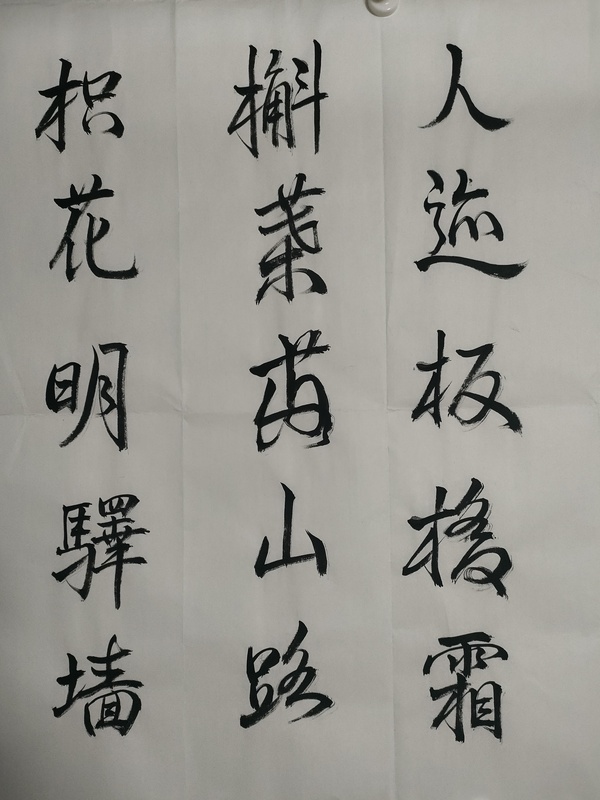 人迹板橋霜
槲葉落山路
枳花明驛墙